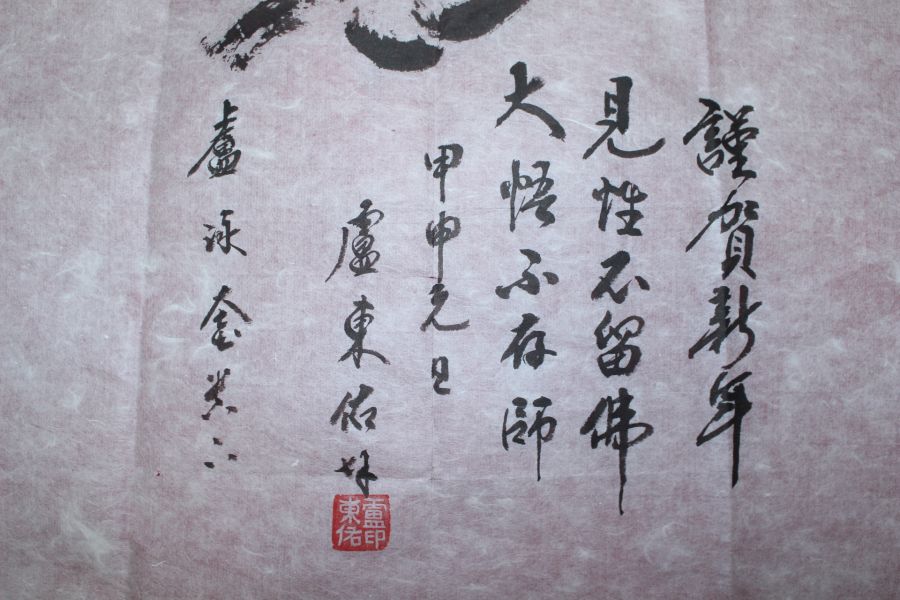 謹賀新年
見性不留佛
大悟不存師
甲申元旦
盧東佑
盧印
東佑
盧泳金